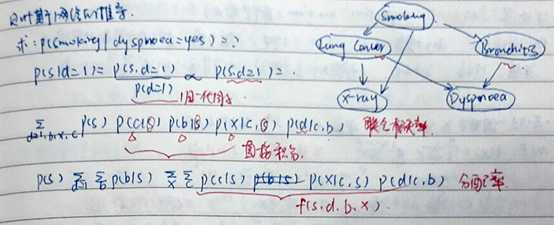 求: p(smoking|dyspnoea=yes)=?
p(s|d=1) = p(s,d=1) / p(d=1) ∝ p(s,d=1) =
Σ d=1,b,x,c p(s) p(c|s) p(b|s) p(x|c,s) p(d|c,b)
p(s) Σ d=1 Σ b p(b|s) Σ x Σ c p(c|s) p(b|s) p(x|c,s) p(d|c,b) 分配率
f(s,d,b,x)
Smoking
Lung Cancer
Bronchitis
X-ray
Dyspnoea